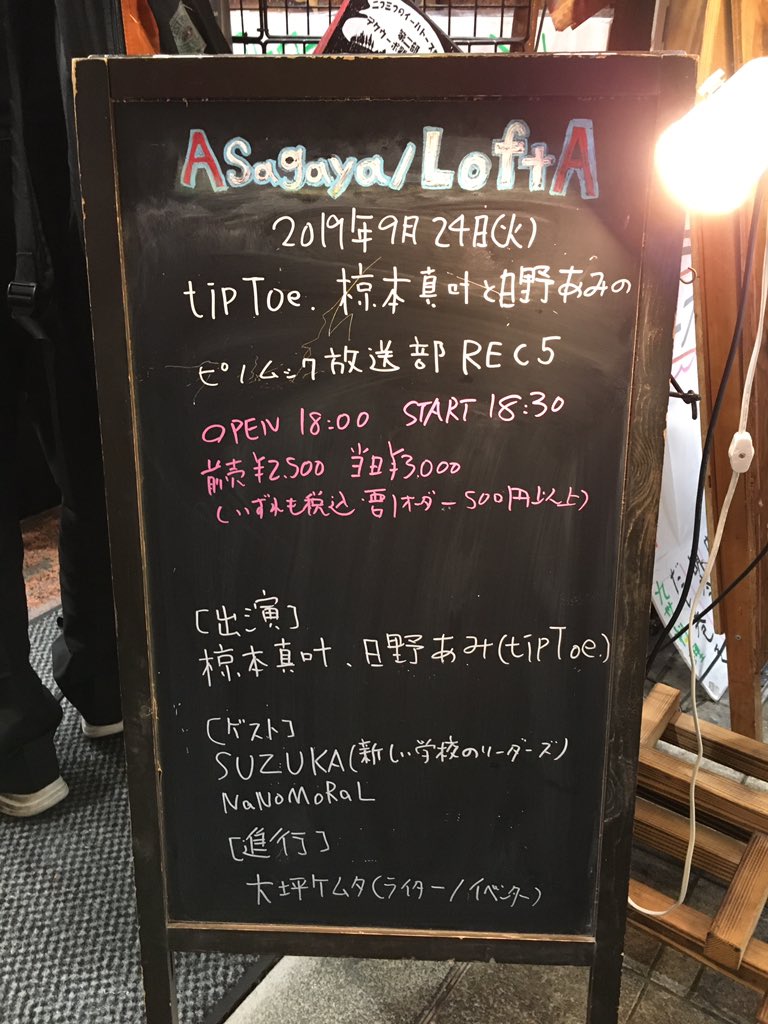 ニつミつタイーハトーズ
第二回
Asagaya/LoftA
2019年9月24日(火)
tipToe. 椋本真叶と日野あみの
ピノムック放送部 REC5
OPEN 18:00 START 18:30
前売¥2,500 当日¥3,000
(いずれも税込・要1オーダー500円以上)
[出演]
椋本真叶、日野あみ(tipToe.)
[ゲスト]
SUZUKA(新しい学校のリーダーズ)
NaNoMoRaL
[進行]
大坪ケムタ(ライター/イベンター)